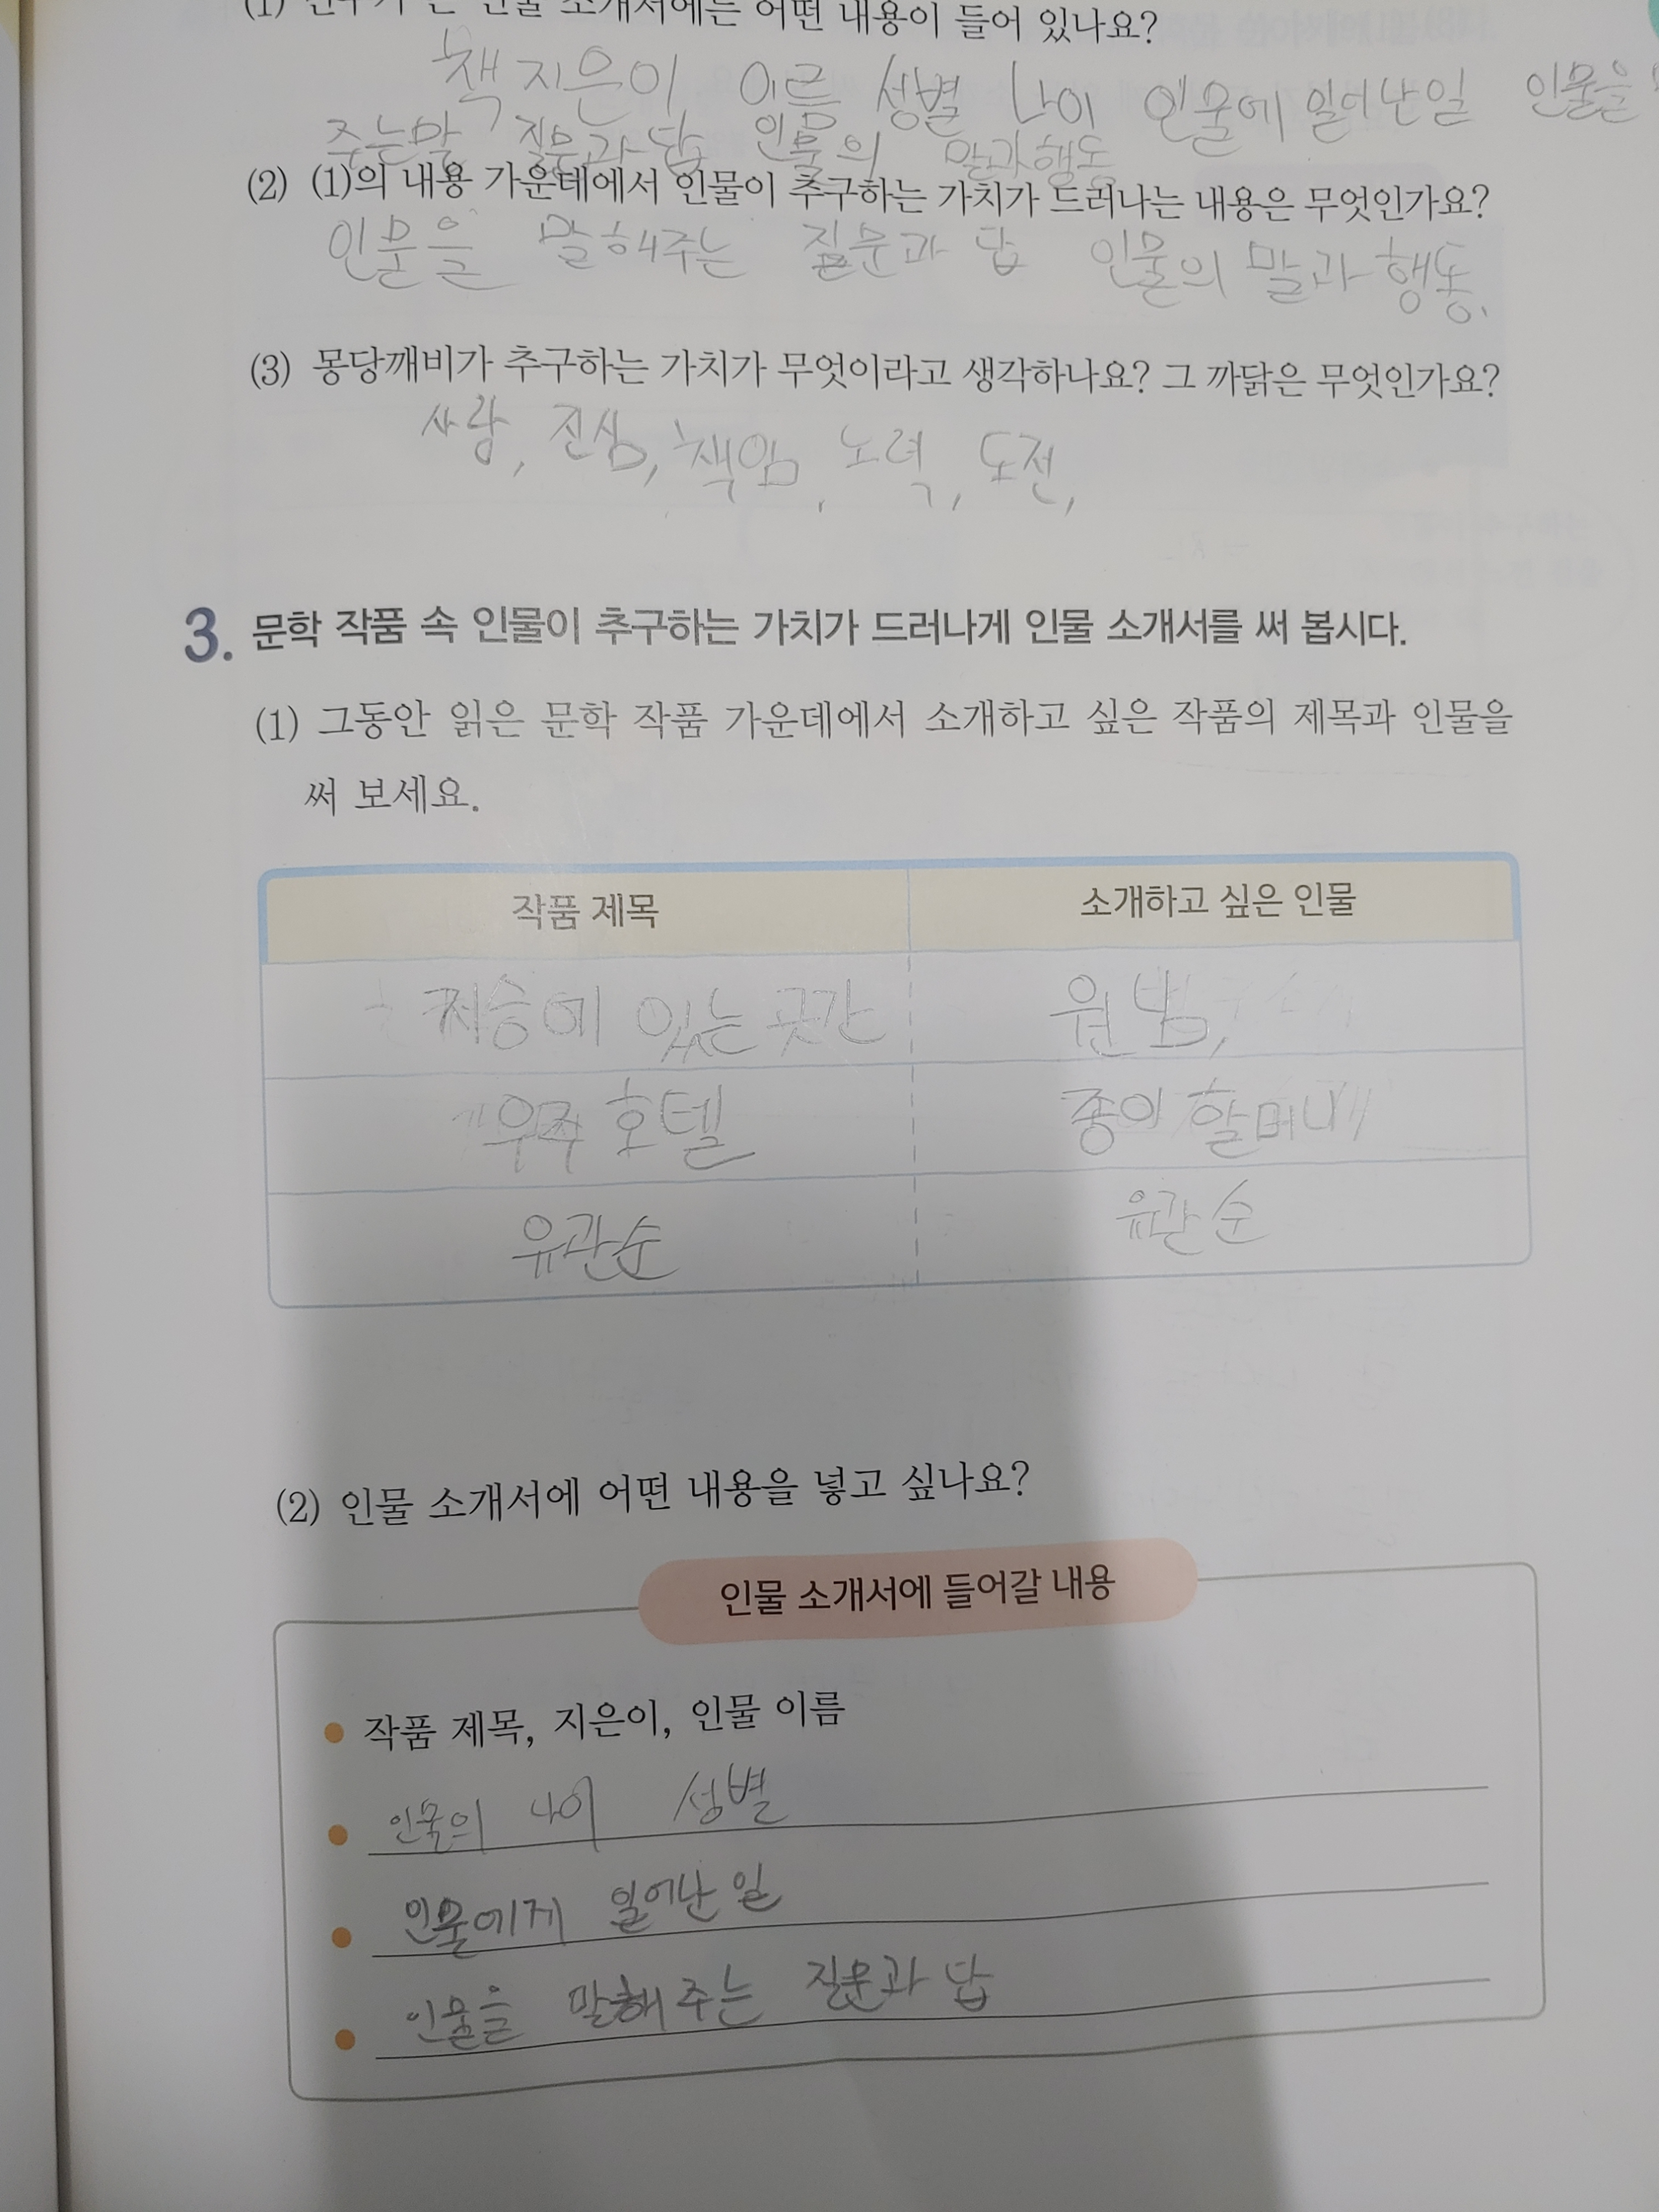 인물 소개서에는 어떤 내용이 들어 있나요?
책 지은이 이름 성별 나이 인물에 일어난일 인물을
주는말 질문과 답 인물의 말과행동
(2) (1)의 내용 가운데에서 인물이 추구하는 가치가 드러나는 내용은 무엇인가요?
인물을 말해주는 질문과 답 인물의 말과 행동.
(3) 몽당깨비가 추구하는 가치가 무엇이라고 생각하나요? 그 까닭은 무엇인가요?
사랑, 진심, 책임, 노력, 도전,
3. 문학 작품 속 인물이 추구하는 가치가 드러나게 인물 소개서를 써 봅시다.
(1) 그동안 읽은 문학 작품 가운데에서 소개하고 싶은 작품의 제목과 인물을
써 보세요.
작품 제목 소개하고 싶은 인물
저승에 있는 곳간 원님,
우주 호텔 종이 할머니
유관순 유관순
(2) 인물 소개서에 어떤 내용을 넣고 싶나요?
인물 소개서에 들어갈 내용
작품 제목, 지은이, 인물 이름
인물의 나이 성별
인물에게 일어난 일
인물을 말해주는 질문과 답